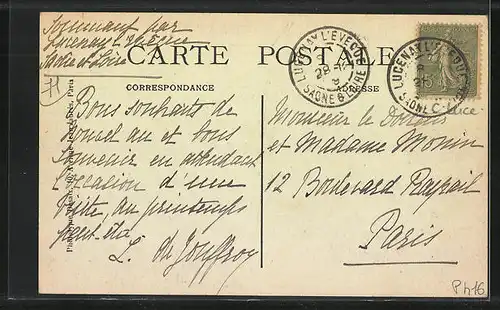 Sommant par
Lucenay l'Evêque
Saône et Loire
CARTE POSTALE
CORRESPONDANCE
ADRESSE
LUCENAY L'EVEQUE
28-12
SAONE & LOIRE
LUCENAY L'EVEQUE
SAONE & LOIRE
15
Bons souhaits de
nouvel an et bons
souvenir en attendant
l'occasion d'une
visite, au printemps
peut être
L. de Jouffroy
Monsieur le Docteur
et Madame Monin
12 Boulevard Raspail
Paris
Ph16